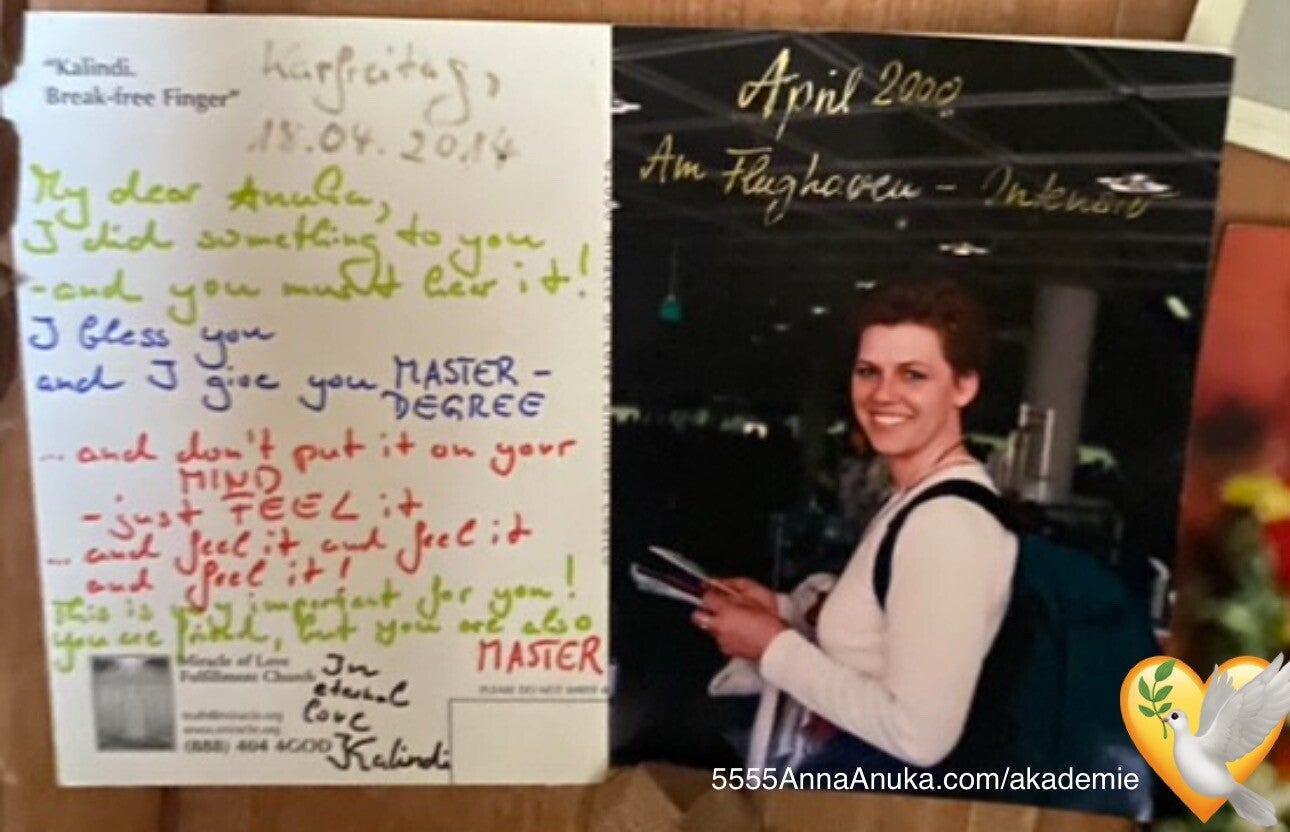 "Kalindi.
Break-free Finger"
Karfreitag,
18.04.2014
My dear Anuka,
I did something to you
-and you must hear it!
I bless you
and I give you MASTER-
DEGREE
... and don't put it on your
MIND
- just FEEL it
... and feel it and feel it
and feel it!
This is very important for you!
you are, but you are also
MASTER
Miracle of Love
Fulfillment Church
(888) 404 4GOD
In
eternal
Love
Kalindi
April 2000
Am Flughaven - Intensiv
5555AnnaAnuka.com/akademie